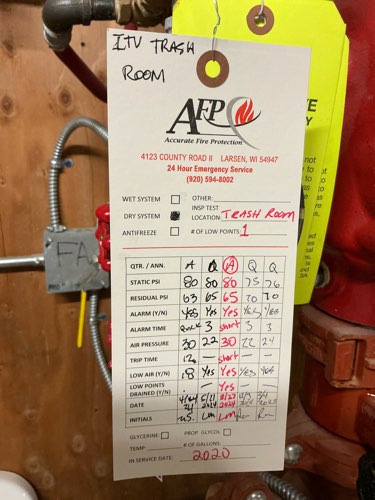 ITV TRASH
ROOM
AFP
Accurate Fire Protection
4123 COUNTY ROAD II LARSEN, WI 54947
24 Hour Emergency Service
(920) 594-8002
WET SYSTEM OTHER:
INSP TEST
DRY SYSTEM LOCATION: TRASH ROOM
ANTIFREEZE # OF LOW POINTS: 1
QTR. / ANN. A Q A Q Q
STATIC PSI 80 80 80 75 76
RESIDUAL PSI 63 65 65 70 70
ALARM (Y/N) Yes Yes Yes Yes Yes
ALARM TIME 3 short 3 3
AIR PRESSURE 30 22 30 22 24
TRIP TIME - short - -
LOW AIR (Y/N) 18 Yes Yes Yes Yes
LOW POINTS
DRAINED (Y/N) - Yes
DATE 5/11 2024 8/27 2024
INITIALS LM LM
GLYCERINE PROP. GLYCOL
TEMP # OF GALLONS:
IN SERVICE DATE: 2020
FA